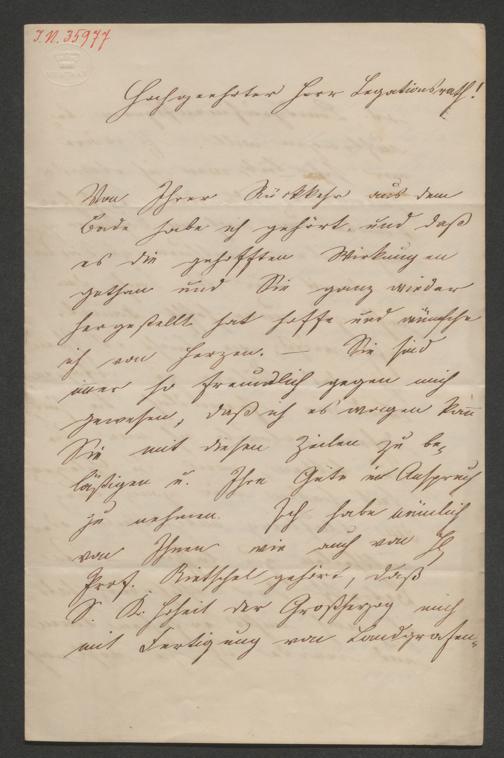 J.N. 35977
Hochgeehrter Herr Legationsrath!
Von Ihrer Rückkehr aus dem
Bade habe ich gehört, und daß
es die gehofften Wirkungen
gethan und Sie ganz wieder
hergestellt hat hoffe und wünsche
ich von Herzen. — Sie sind
immer so freundlich gegen mich
gewesen, daß ich es wagen kann
Sie mit diesen Zeilen zu be-
lästigen u. Ihre Güte in Anspruch
zu nehmen. Ich habe nämlich
von Ihnen wie auch von H
Prof. Rietschel gehört, daß
S. K. Hoheit der Großherzog mich
mit Fertigung von Landgrafen-